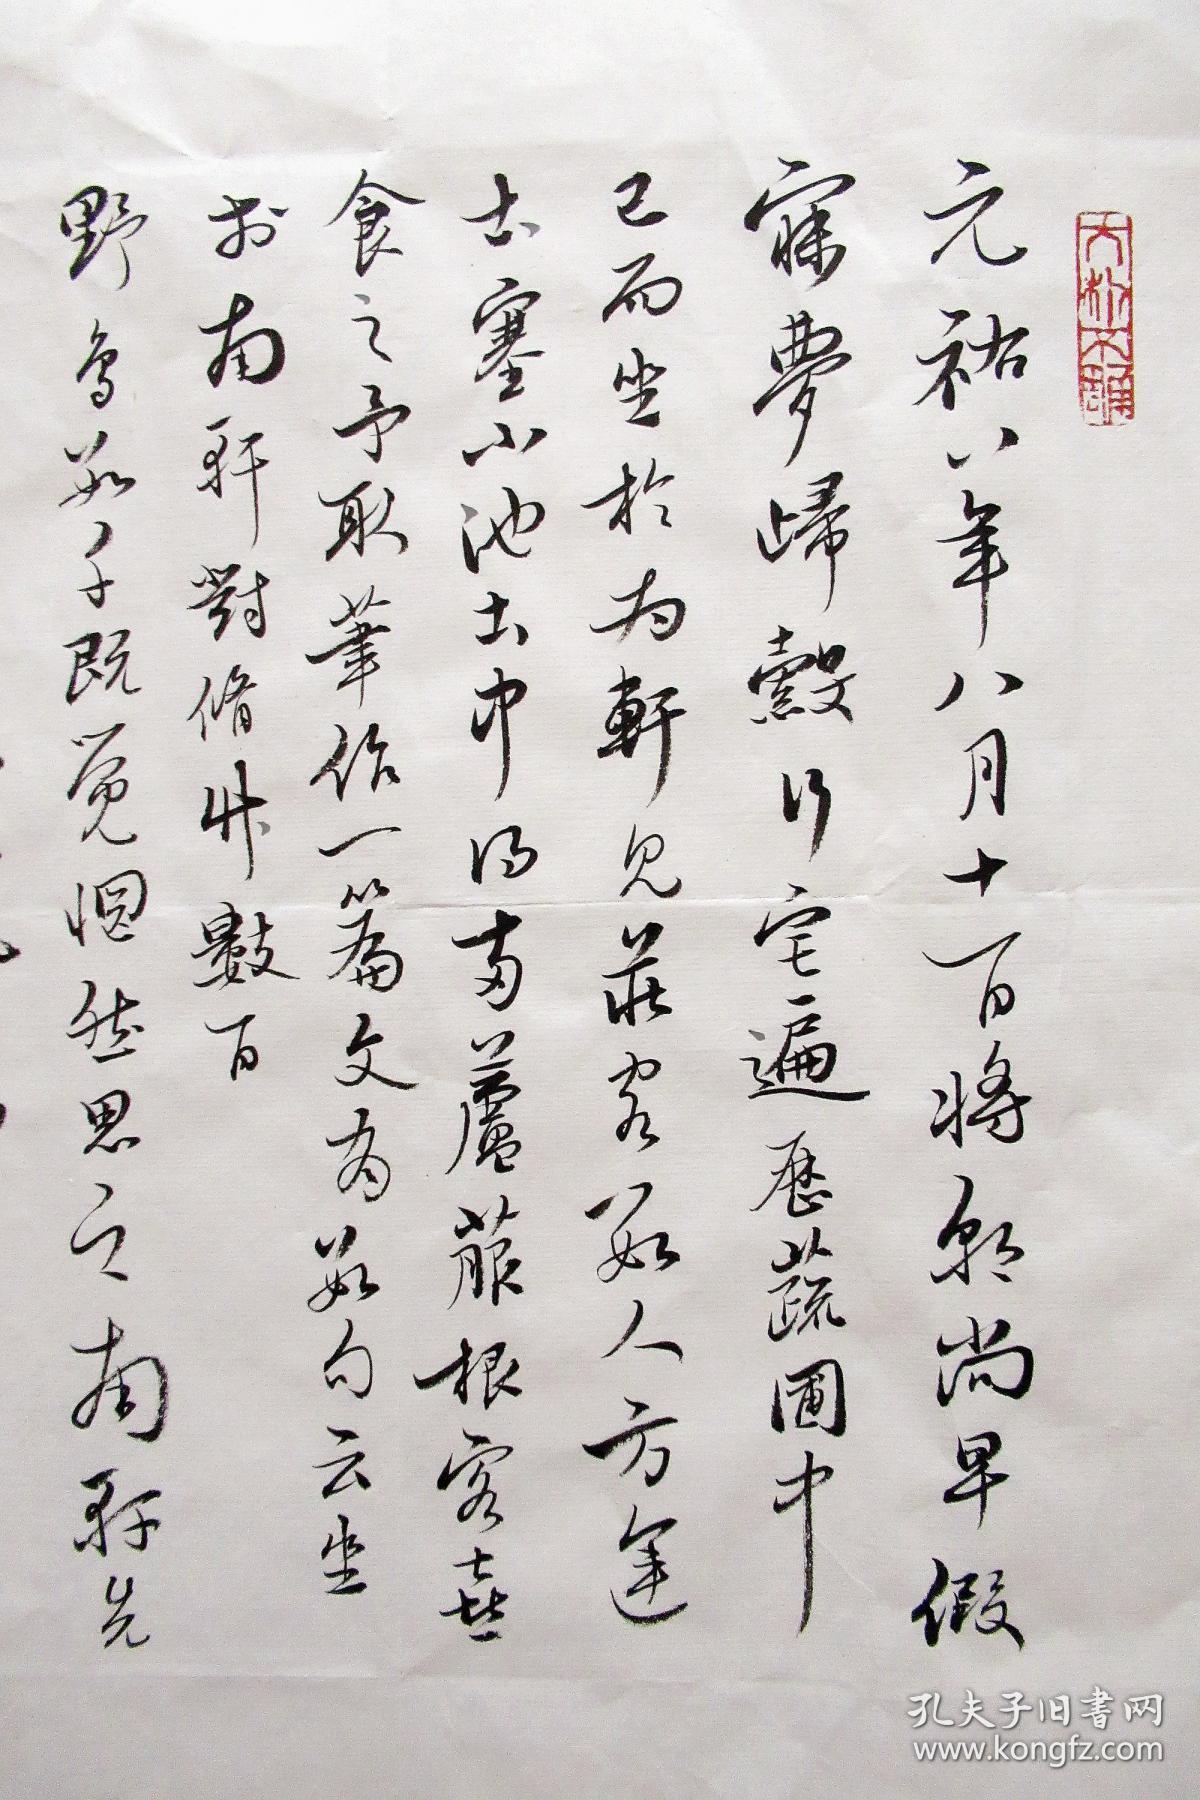 元祐八年八月十一日將朝尚早假
寐夢歸縠行宅遍歷蔬圃中
已而坐於南軒見莊客數人方運
土塞小池土中得兩蘆菔根客喜
食之予取筆作一篇文有數句云坐
於南軒對脩竹數百
野鳥數千既覺惘然思之南軒先
孔夫子旧書网
www.kongfz.com